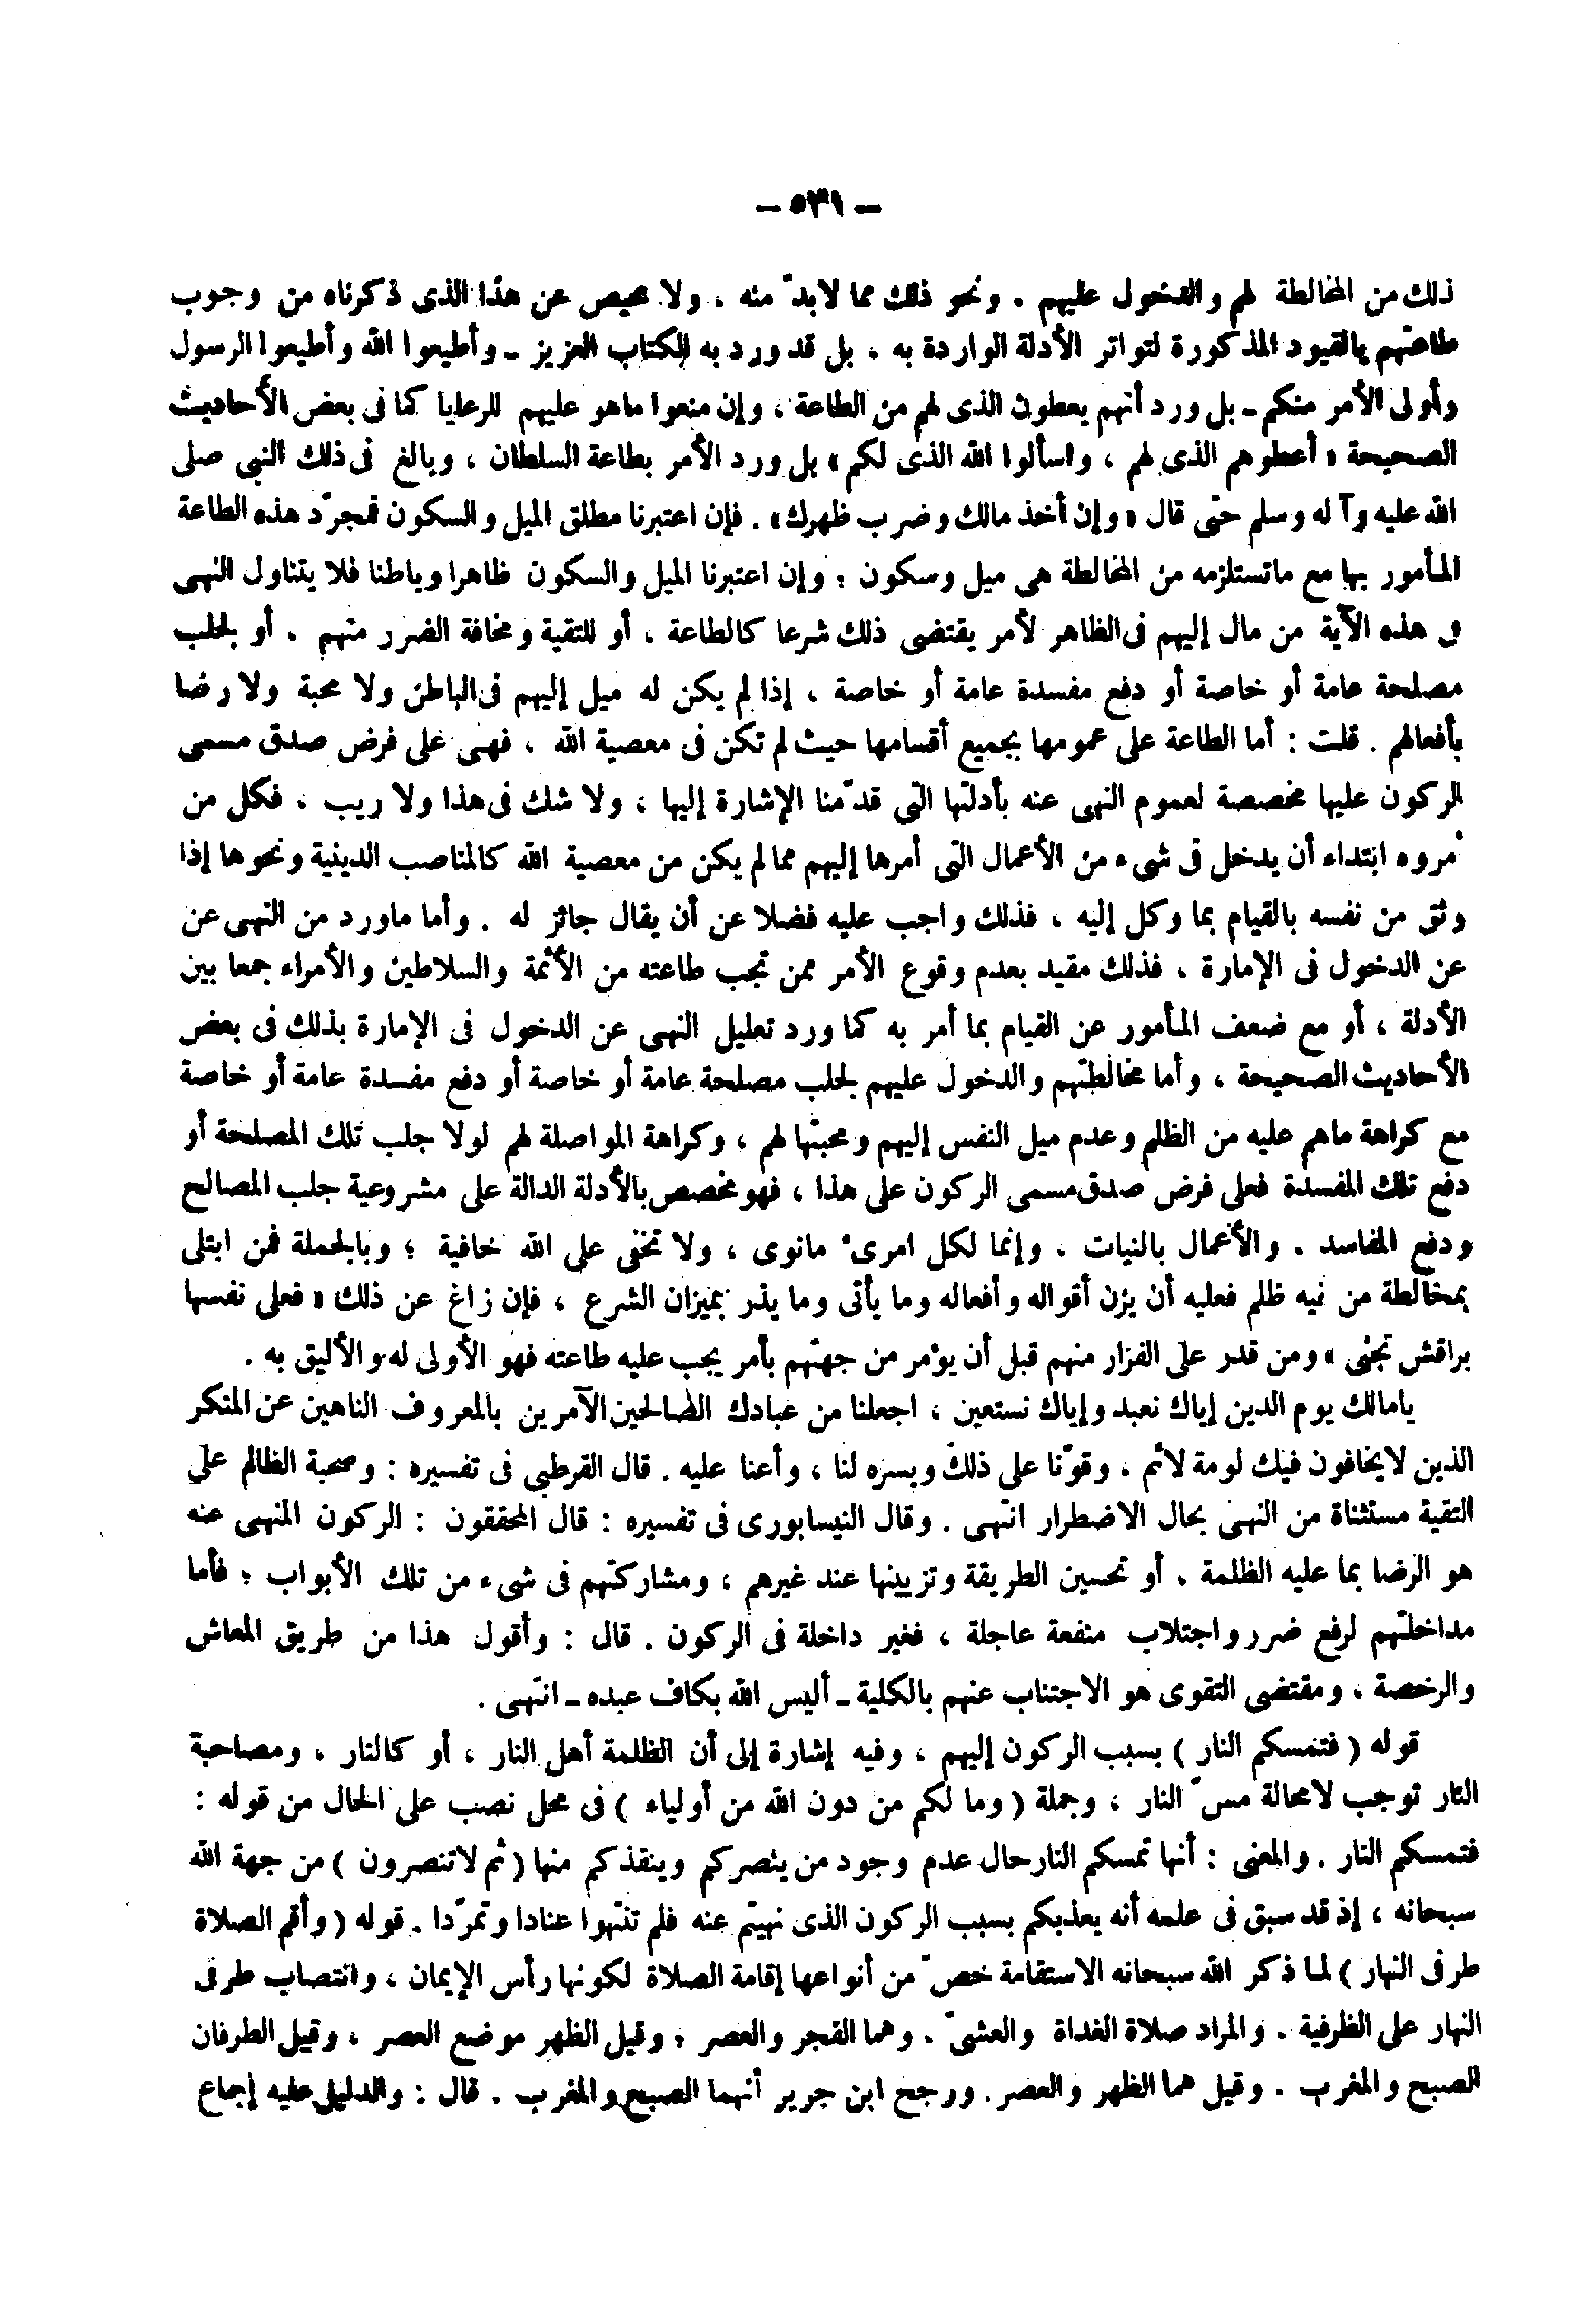 – ٥٣١ –
ذلك من المخالطة لهم والدخول عليهم ، ونحو ذلك مما لابدّ منه ، ولا محيص عن هذا الذى ذكرناه من وجوب
طاعتهم بالقيود المذكورة لتواتر الأدلة الواردة به ، بل قد ورد به الكتاب العزيز ـ وأطيعوا الله وأطيعوا الرسول
وأولى الأمر منكم ـ بل ورد أنهم يعطون الذى لهم من الطاعة ، وإن منعوا ماهو عليهم للرعايا كما فى بعض الأحاديث
الصحيحة « أعطوهم الذى لهم ، واسألوا الله الذى لكم » بل ورد الأمر بطاعة السلطان ، وبالغ فى ذلك النبى صلى
الله عليه وآله وسلم حتى قال « وإن أخذ مالك وضرب ظهرك » . فإن اعتبرنا مطلق الميل والسكون فمجرّد هذه الطاعة
المأمور بها مع ماتستلزمه من المخالطة هى ميل وسكون ؛ وإن اعتبرنا الميل والسكون ظاهرا وباطنا فلا يتناول النهى
فى هذه الآية من مال إليهم فى الظاهر لأمر يقتضى ذلك شرعا كالطاعة ، أو للتقية ومخافة الضرر منهم ، أو لجلب
مصلحة عامة أو خاصة أو دفع مفسدة عامة أو خاصة ، إذا لم يكن له ميل إليهم فى الباطن ولا محبة ولا رضا
بأفعالهم . قلت : أما الطاعة على عمومها بجميع أقسامها حيث لم تكن فى معصية الله ، فهى على فرض صدق مسمى
الركون عليها مخصصة لعموم النهى عنه بأدلتها التى قدّمنا الإشارة إليها ، ولا شك فى هذا ولا ريب ، فكل من
أمروه ابتداء أن يدخل فى شىء من الأعمال التى أمرها إليهم مما لم يكن من معصية الله كالمناصب الدينية ونحوها إذا
وثق من نفسه بالقيام بما وكل إليه ، فذلك واجب عليه فضلا عن أن يقال جائز له . وأما ماورد من النهى عن
عن الدخول فى الإمارة ، فذلك مقيد بعدم وقوع الأمر ممن تجب طاعته من الأئمة والسلاطين والأمراء جمعا بين
الأدلة ، أو مع ضعف المأمور عن القيام بما أمر به كما ورد تعليل النهى عن الدخول فى الإمارة بذلك فى بعض
الأحاديث الصحيحة ، وأما مخالطتهم والدخول عليهم لجلب مصلحة عامة أو خاصة أو دفع مفسدة عامة أو خاصة
مع كراهة ماهم عليه من الظلم وعدم ميل النفس إليهم ومحبتها لهم ، وكراهة المواصلة لهم لولا جلب تلك المصلحة أو
دفع تلك المفسدة فعلى فرض صدق مسمى الركون على هذا ، فهو مخصص بالأدلة الدالة على مشروعية جلب المصالح
ودفع المفاسد . والأعمال بالنيات ، وإنما لكل امرئ مانوى ، ولا تخفى على الله خافية ؛ وبالجملة فمن ابتلى
بمخالطة من فيه ظلم فعليه أن يزن أقواله وأفعاله وما يأتى وما يذر بميزان الشرع ، فإن زاغ عن ذلك « فعلى نفسها
براقش تجنى » ومن قدر على الفرار منهم قبل أن يؤمر من جهتهم بأمر يجب عليه طاعته فهو الأولى له والأليق به .
يامالك يوم الدين إياك نعبد وإياك نستعين ، اجعلنا من عبادك الصالحين الآمرين بالمعروف الناهين عن المنكر
الذين لايخافون فيك لومة لائم ، وقوّنا على ذلك ويسره لنا ، وأعنا عليه . قال القرطبى فى تفسيره : وصحبة الظالم على
التقية مستثناة من النهى بحال الاضطرار انتهى . وقال النيسابورى فى تفسيره : قال المحققون : الركون المنهى عنه
هو الرضا بما عليه الظلمة ، أو تحسين الطريقة وتزيينها عند غيرهم ، ومشاركتهم فى شىء من تلك الأبواب ؛ فأما
مداخلتهم لرفع ضرر واجتلاب منفعة عاجلة ، فغير داخلة فى الركون . قال : وأقول هذا من طريق المعاش
والرخصة ، ومقتضى التقوى هو الاجتناب عنهم بالكلية ـ أليس الله بكاف عبده ـ انتهى .
قوله ( فتمسكم النار ) بسبب الركون إليهم ، وفيه إشارة إلى أن الظلمة أهل النار ، أو كالنار ، ومصاحبة
النار توجب لامحالة مسّ النار ، وجملة ( وما لكم من دون الله من أولياء ) فى محل نصب على الحال من قوله :
فتمسكم النار . والمعنى : أنها تمسكم النار حال عدم وجود من ينصركم وينقذكم منها ( ثم لاتنصرون ) من جهة الله
سبحانه ، إذ قد سبق فى علمه أنه يعذبكم بسبب الركون الذى نهيتم عنه فلم تنتهوا عنادا وتمرّدا . قوله ( وأقم الصلاة
طرفى النهار ) لما ذكر الله سبحانه الاستقامة خصّ من أنواعها إقامة الصلاة لكونها رأس الإيمان ، وانتصاب طرفى
النهار على الظرفية ، والمراد صلاة الغداة والعشىّ ، وهما الفجر والعصر ؛ وقيل الظهر موضع العصر ، وقيل الطرفان
الصبح والمغرب ، وقيل هما الظهر والعصر . ورجح ابن جرير أنهما الصبح والمغرب ، قال : والدليل عليه إجماع